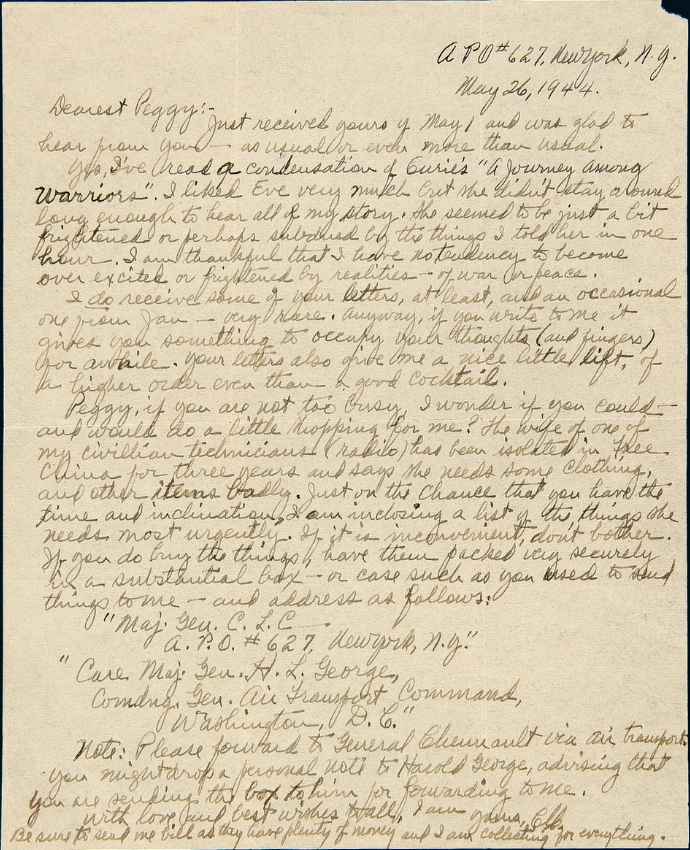 A P O # 627, New York, N.Y.
May 26, 1944.
Dearest Peggy:-
Just received yours of May 1 and was glad to
hear from you — as usual or even more than usual.
Yes, I've read a condensation of Curie's "A Journey Among
Warriors". I liked Eve very much but she didn't stay around
long enough to hear all of my story. She seemed to be just a bit
frightened or perhaps subdued by the things I told her in one
hour. I am thankful that I have no tendency to become
over excited or frightened by realities — of war or peace.
I do receive some of your letters, at least, and an occasional
one from Jan — very rare. Anyway, if you write to me it
gives you something to occupy your thoughts (and fingers)
for awhile. Your letters also give me a nice little lift, of
a higher order even than a good cocktail.
Peggy, if you are not too busy, I wonder if you could —
and would do a little shopping for me? The wife of one of
my civillian technicians (radio) has been isolated in Free
China for three years and says she needs some clothing,
and other items badly. Just on the chance that you have the
time and inclination, I am inclosing a list of the things she
needs most urgently. If it is inconvenient, dont bother.
If you do buy the things, have them packed very securely
in a substantial box — or case such as you used to send
things to me — and address as follows:
"Maj. Gen. C. L. C —
A. P. O. # 627, New York, N.Y."
"Care Maj. Gen. H. L. George,
Comdng. Gen. Air Transport Command,
Washington, D. C."
Note: Please forward to General Chennault via air transport.
You might drop a personal note to Harold George, advising that
you are sending the box to him for forwarding to me.
With love and best wishes to all, I am yours,
Be sure to send me bill as they have plenty of money and I am collecting for everything.